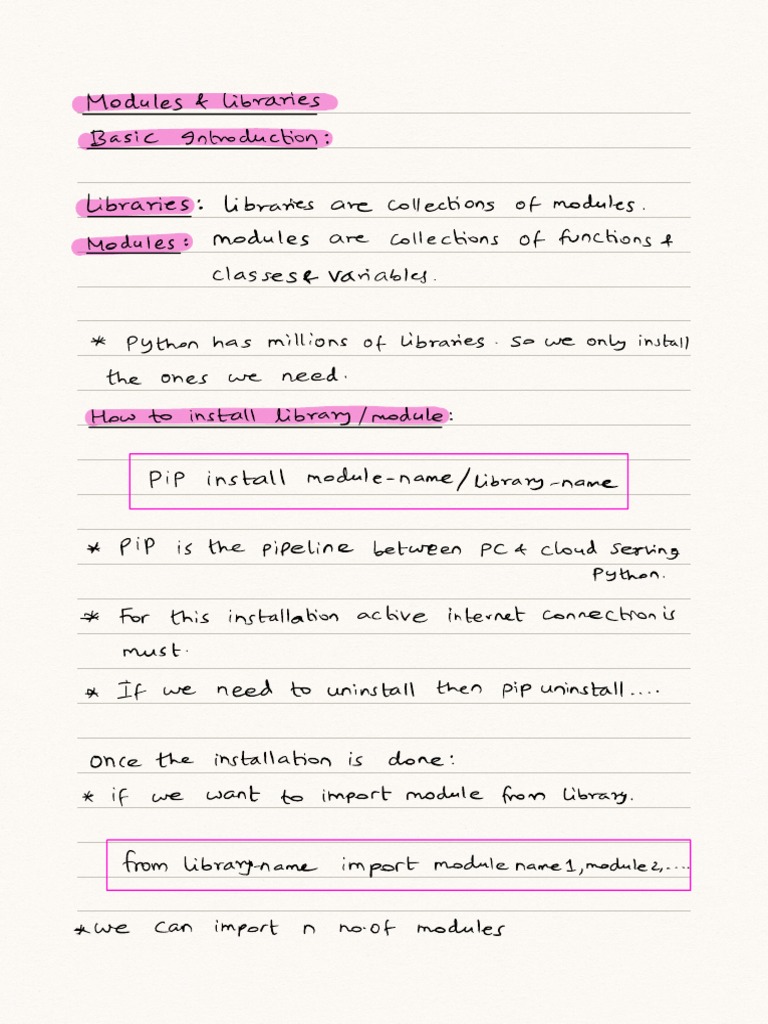 Modules & Libraries
Basic Introduction:
Libraries: libraries are collections of modules.
Modules: modules are collections of functions &
classes & variables.
* Python has millions of libraries. So we only install
the ones we need.
How to install library/module:
PiP install module-name/library-name
* PiP is the pipeline between PC & cloud serving
Python.
* For this installation active internet connection is
must.
* If we need to uninstall then pip uninstall....
Once the installation is done:
* if we want to import module from library.
from library-name import module name1, module2,....
* we can import n no.of modules